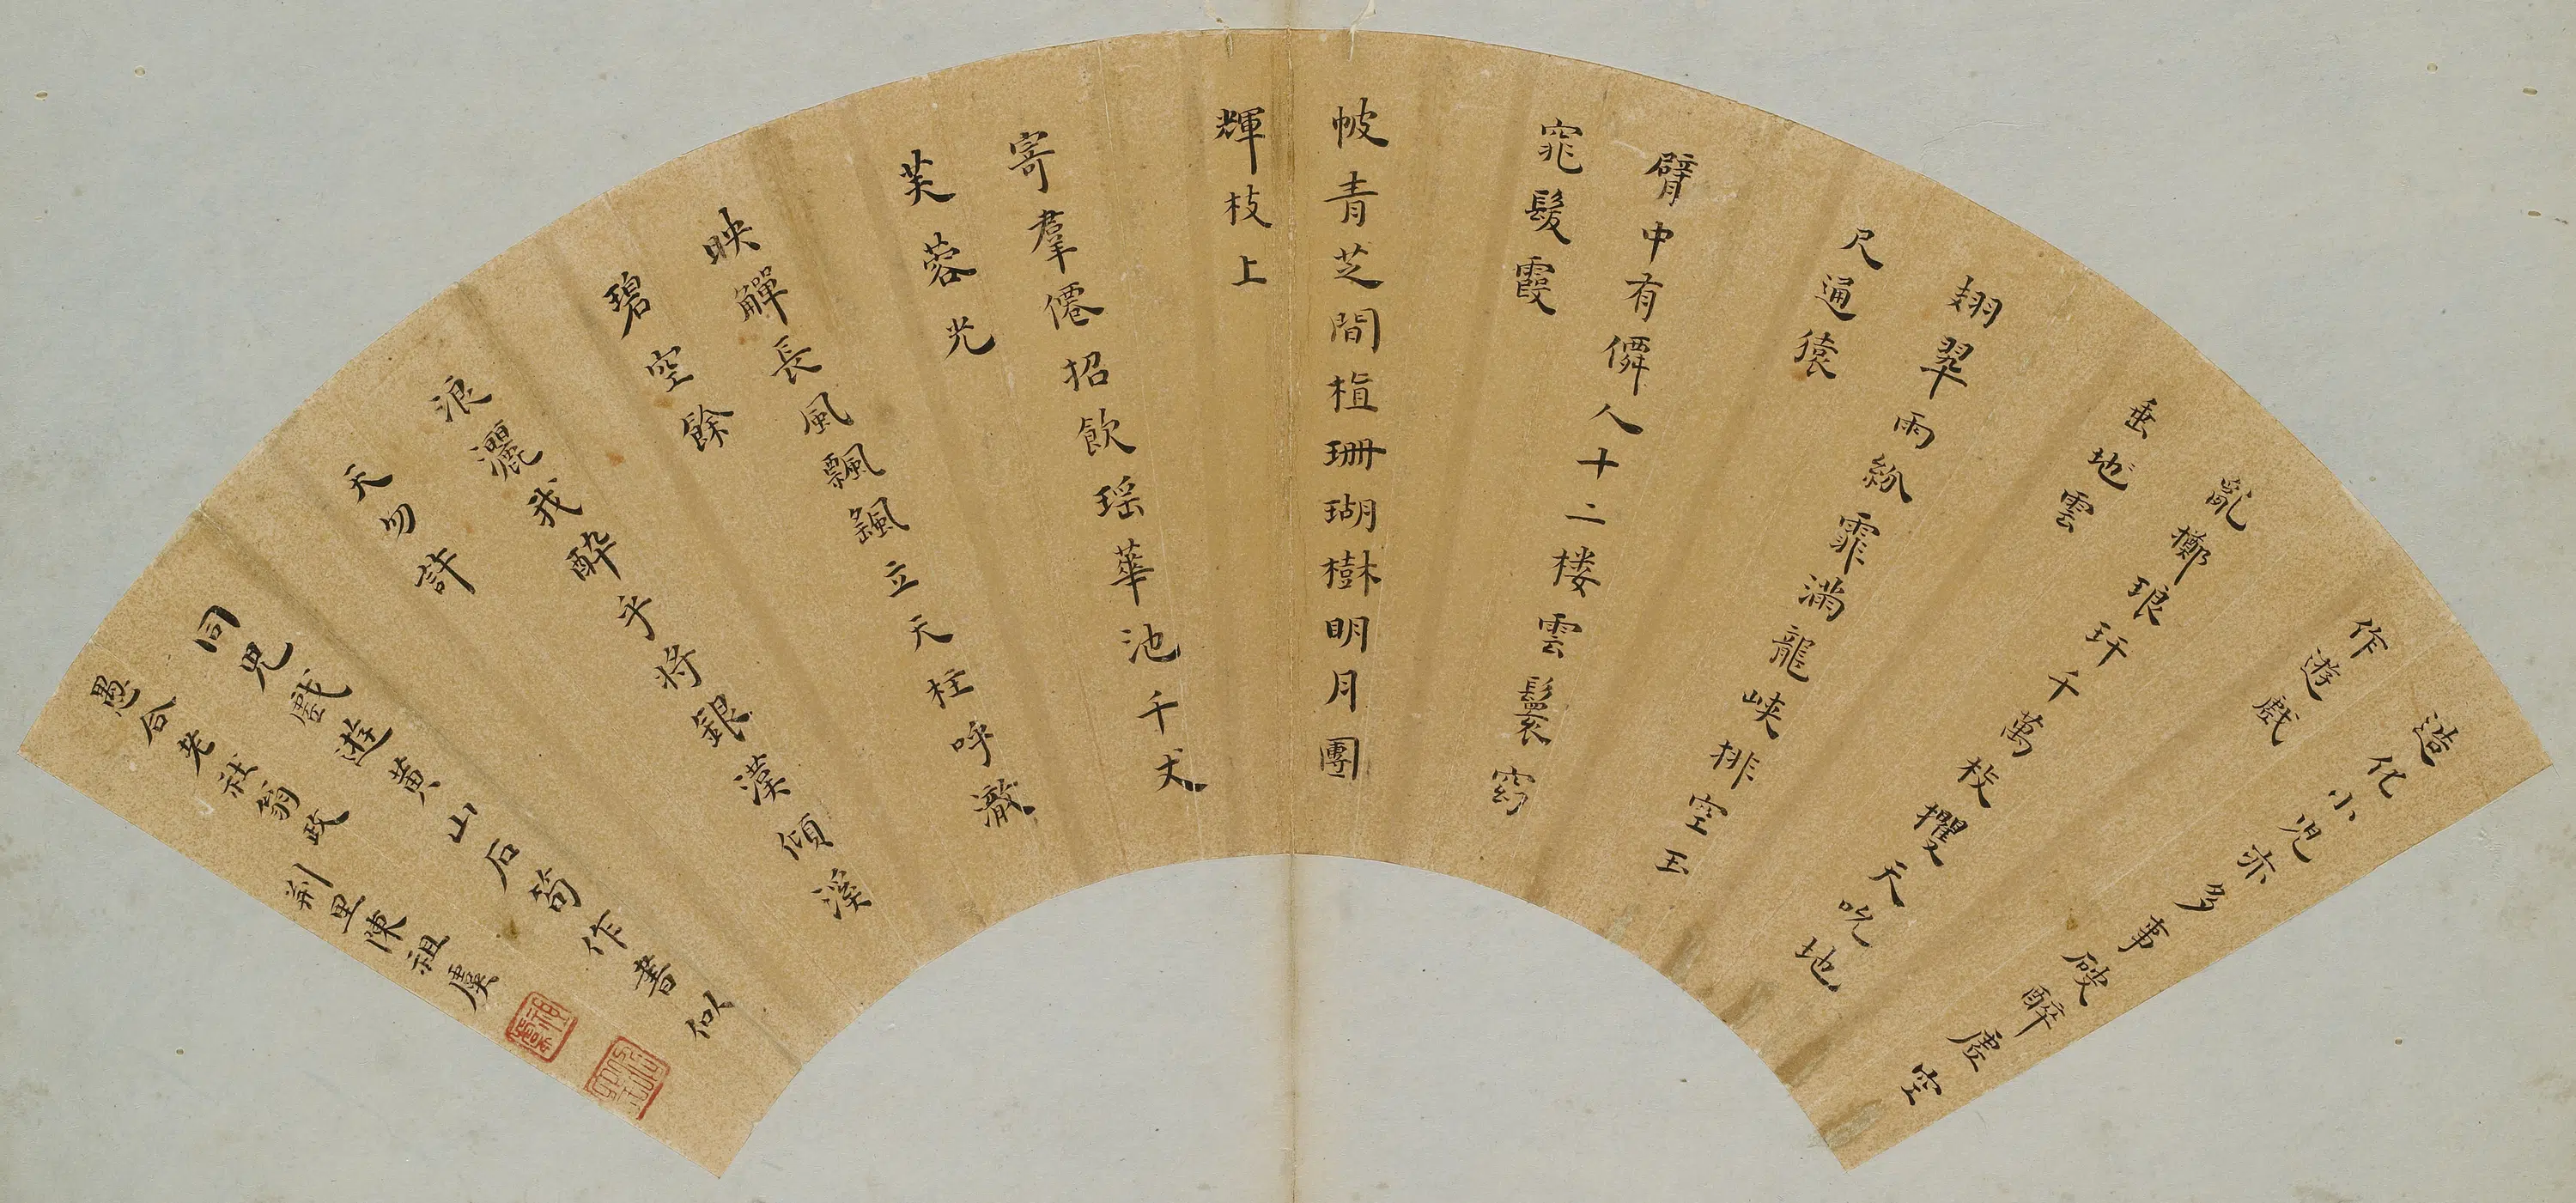 造化小児亦多事破碎虛空
作遊戲
亂擲琅玕千萬枝攫天吮地
垂地雲
翅翠雨紛霏滿龍峽排空玉
尺通猿
臂中有僊人十二楼雲鬟窈
窕髮霞
帔青芝間植珊瑚樹明月團
輝枝上
寄羣僊招飲瑶華池千丈
芙蓉光
映觶長風飄颻立天柱呼瀲
碧空餘
浪灑我酔乎将銀漢傾溪
天勿許
同兒戲遊黃山石筍作書似
愚合老社翁政 荆里陳祖虞